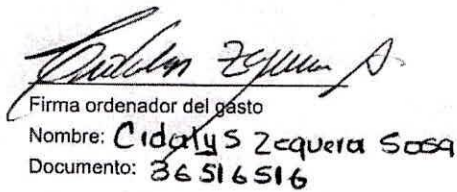 Cidalys Zequera S.
Firma ordenador del gasto
Nombre: Cidalys Zequera Sosa
Documento: 36516516